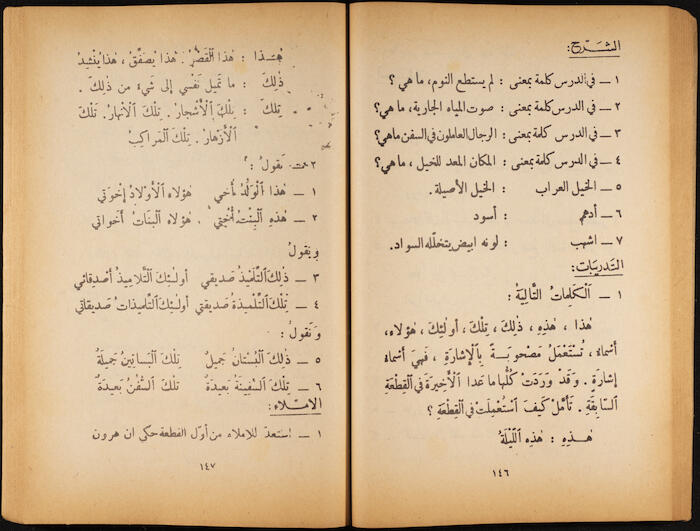 الشَّرْح:
١ ـ في الدرس كلمة بمعنى : لم يستطع النوم، ما هي ؟
٢ ـ في الدرس كلمة بمعنى : صوت المياه الجارية، ما هي ؟
٣ ـ في الدرس كلمة بمعنى : الرجال العاملون في السفن ما هي؟
٤ ـ في الدرس كلمة بمعنى : المكان المعد للخيل ، ما هي؟
٥ ـ الخيل العراب : الخيل الأصيلة .
٦ ـ أدهم : أسود
٧ ـ اشهب : لونه ابيض يتخلّله السواد.
التدريبات:
١ ـ اَلْكَلِماتُ التّالِيَةُ :
هٰذا ، هٰذِهِ ، ذٰلِكَ ، تِلْكَ ، أولٰئِكَ ، هٰؤُلاءِ،
أَسْماءٌ ، تُسْتَعْمَلُ مَصْحوبَةً بِالْإِشارَةِ ، فَهِيَ أَسْماءُ
إشارَةٍ . وَقَدْ وَرَدَتْ كُلُّها ما عَدا الْأَخيرَةَ في القِطْعَةِ
السّابِقَةِ . تَأَمَّلْ كَيْفَ اسْتُعْمِلَتْ في القِطْعَةِ ؟
هٰذِهِ : هٰذِهِ اللَّيْلَةُ
١٤٦
هٰذا : هٰذا الْقَصْرُ . هٰذا يُصَفِّقُ ، هٰذا يُنْشِدُ
ذٰلِكَ : ما تَميلُ نَفْسي إلى شَيْءٍ مِنْ ذٰلِكَ .
تِلْكَ : تِلْكَ الْأَشْجارُ . تِلْكَ الْأَنْهارُ . تِلْكَ
الْأَزْهارُ . تِلْكَ الْمَراكِبُ
٢ ـ نَقولُ :
١ ـ هٰذا الْوَلَدُ أَخي هٰؤُلاءِ الْأَوْلادُ إخْوَتي
٢ ـ هٰذِهِ الْبِنْتُ أُخْتي . هٰؤُلاءِ الْبَناتُ أَخَواتي
وَيَقولُ
٣ ـ ذٰلِكَ التِّلْميذُ صَديقي أولٰئِكَ التَّلاميذُ أَصْدِقائي
٤ ـ تِلْكَ التِّلْميذَةُ صَديقَتي أولٰئِكَ التِّلْميذاتُ صَديقاتي
وَنَقولُ :
٥ ـ ذٰلِكَ الْبُسْتانُ جَميلٌ تِلْكَ الْبَساتينُ جَميلَةٌ
٦ ـ تِلْكَ السَّفينَةُ بَعيدَةٌ تِلْكَ السُّفُنُ بَعيدَةٌ
الإملاء :
١ ـ استعدّ للإملاء من أوّل القطعة حكي ان هرون
١٤٧